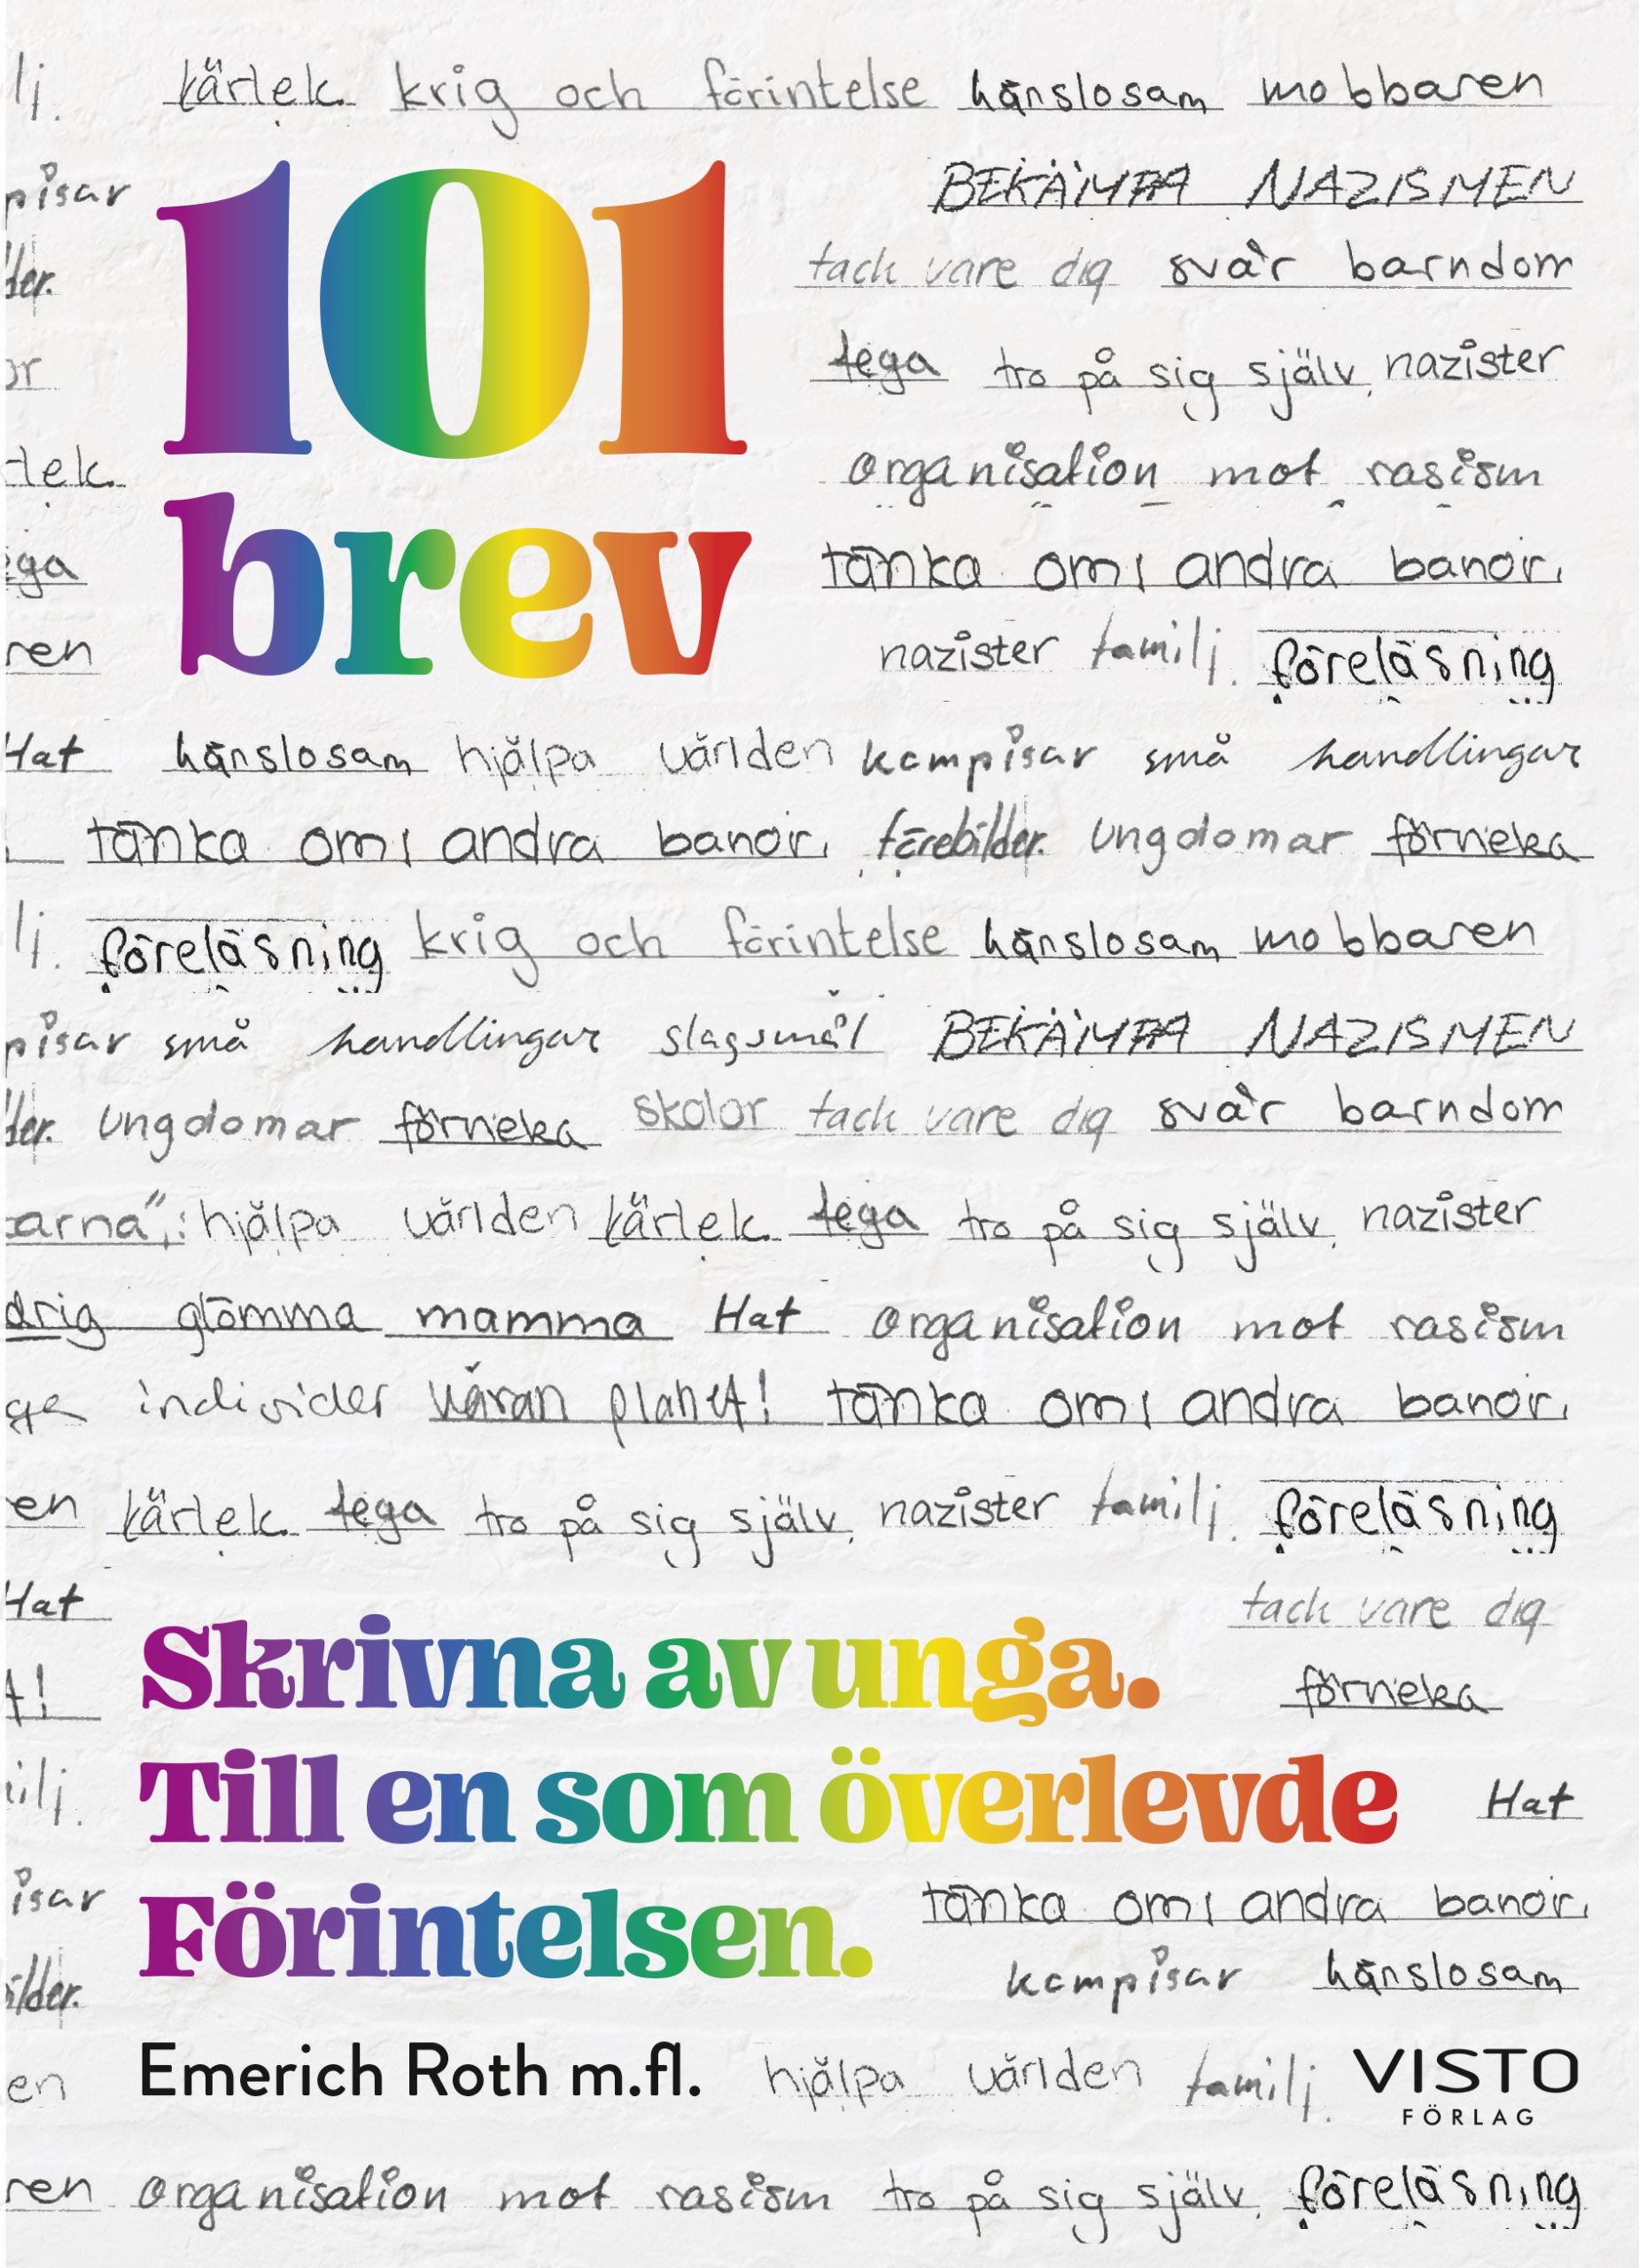 lj. kärlek krig och förintelse hänslosam mobbaren
pisar
101
BEKÄMPA NAZISMEN
der. tack vare dig svår barndom
or tega tro på sig själv, nazister
rlek. organisation mot rasism
brev
ega tänka om i andra banor.
ren nazister familj. föreläsning
Hat hänslosam hjälpa världen kompisar små handlingar
tänka om i andra banor, förebilder. Ungdomar förneka
lj. föreläsning krig och förintelse hänslosam mobbaren
pisar små handlingar slagsmål BEKÄMPA NAZISMEN
der. Ungdomar förneka skolor tack vare dig svår barndom
arna", hjälpa världen kärlek. tega tro på sig själv, nazister
drig glömma mamma Hat organisation mot rasism
individer våran planet! tänka om i andra banor,
en kärlek. tega tro på sig själv, nazister familj. föreläsning
Hat tack vare dig
Skrivna av unga.
t! förneka
Till en som överlevde
ilj. Hat
Förintelsen.
isar tänka om i andra banor,
ilder. kompisar hänslosam
Emerich Roth m.fl.
en hjälpa världen familj. VISTO
FÖRLAG
ren organisation mot rasism tro på sig själv, föreläsning